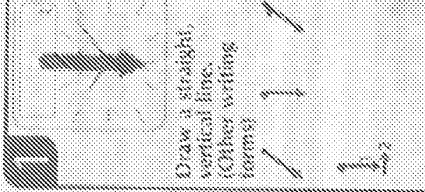 1
Draw a straight,
vertical line.
(Other writing
forms)
1